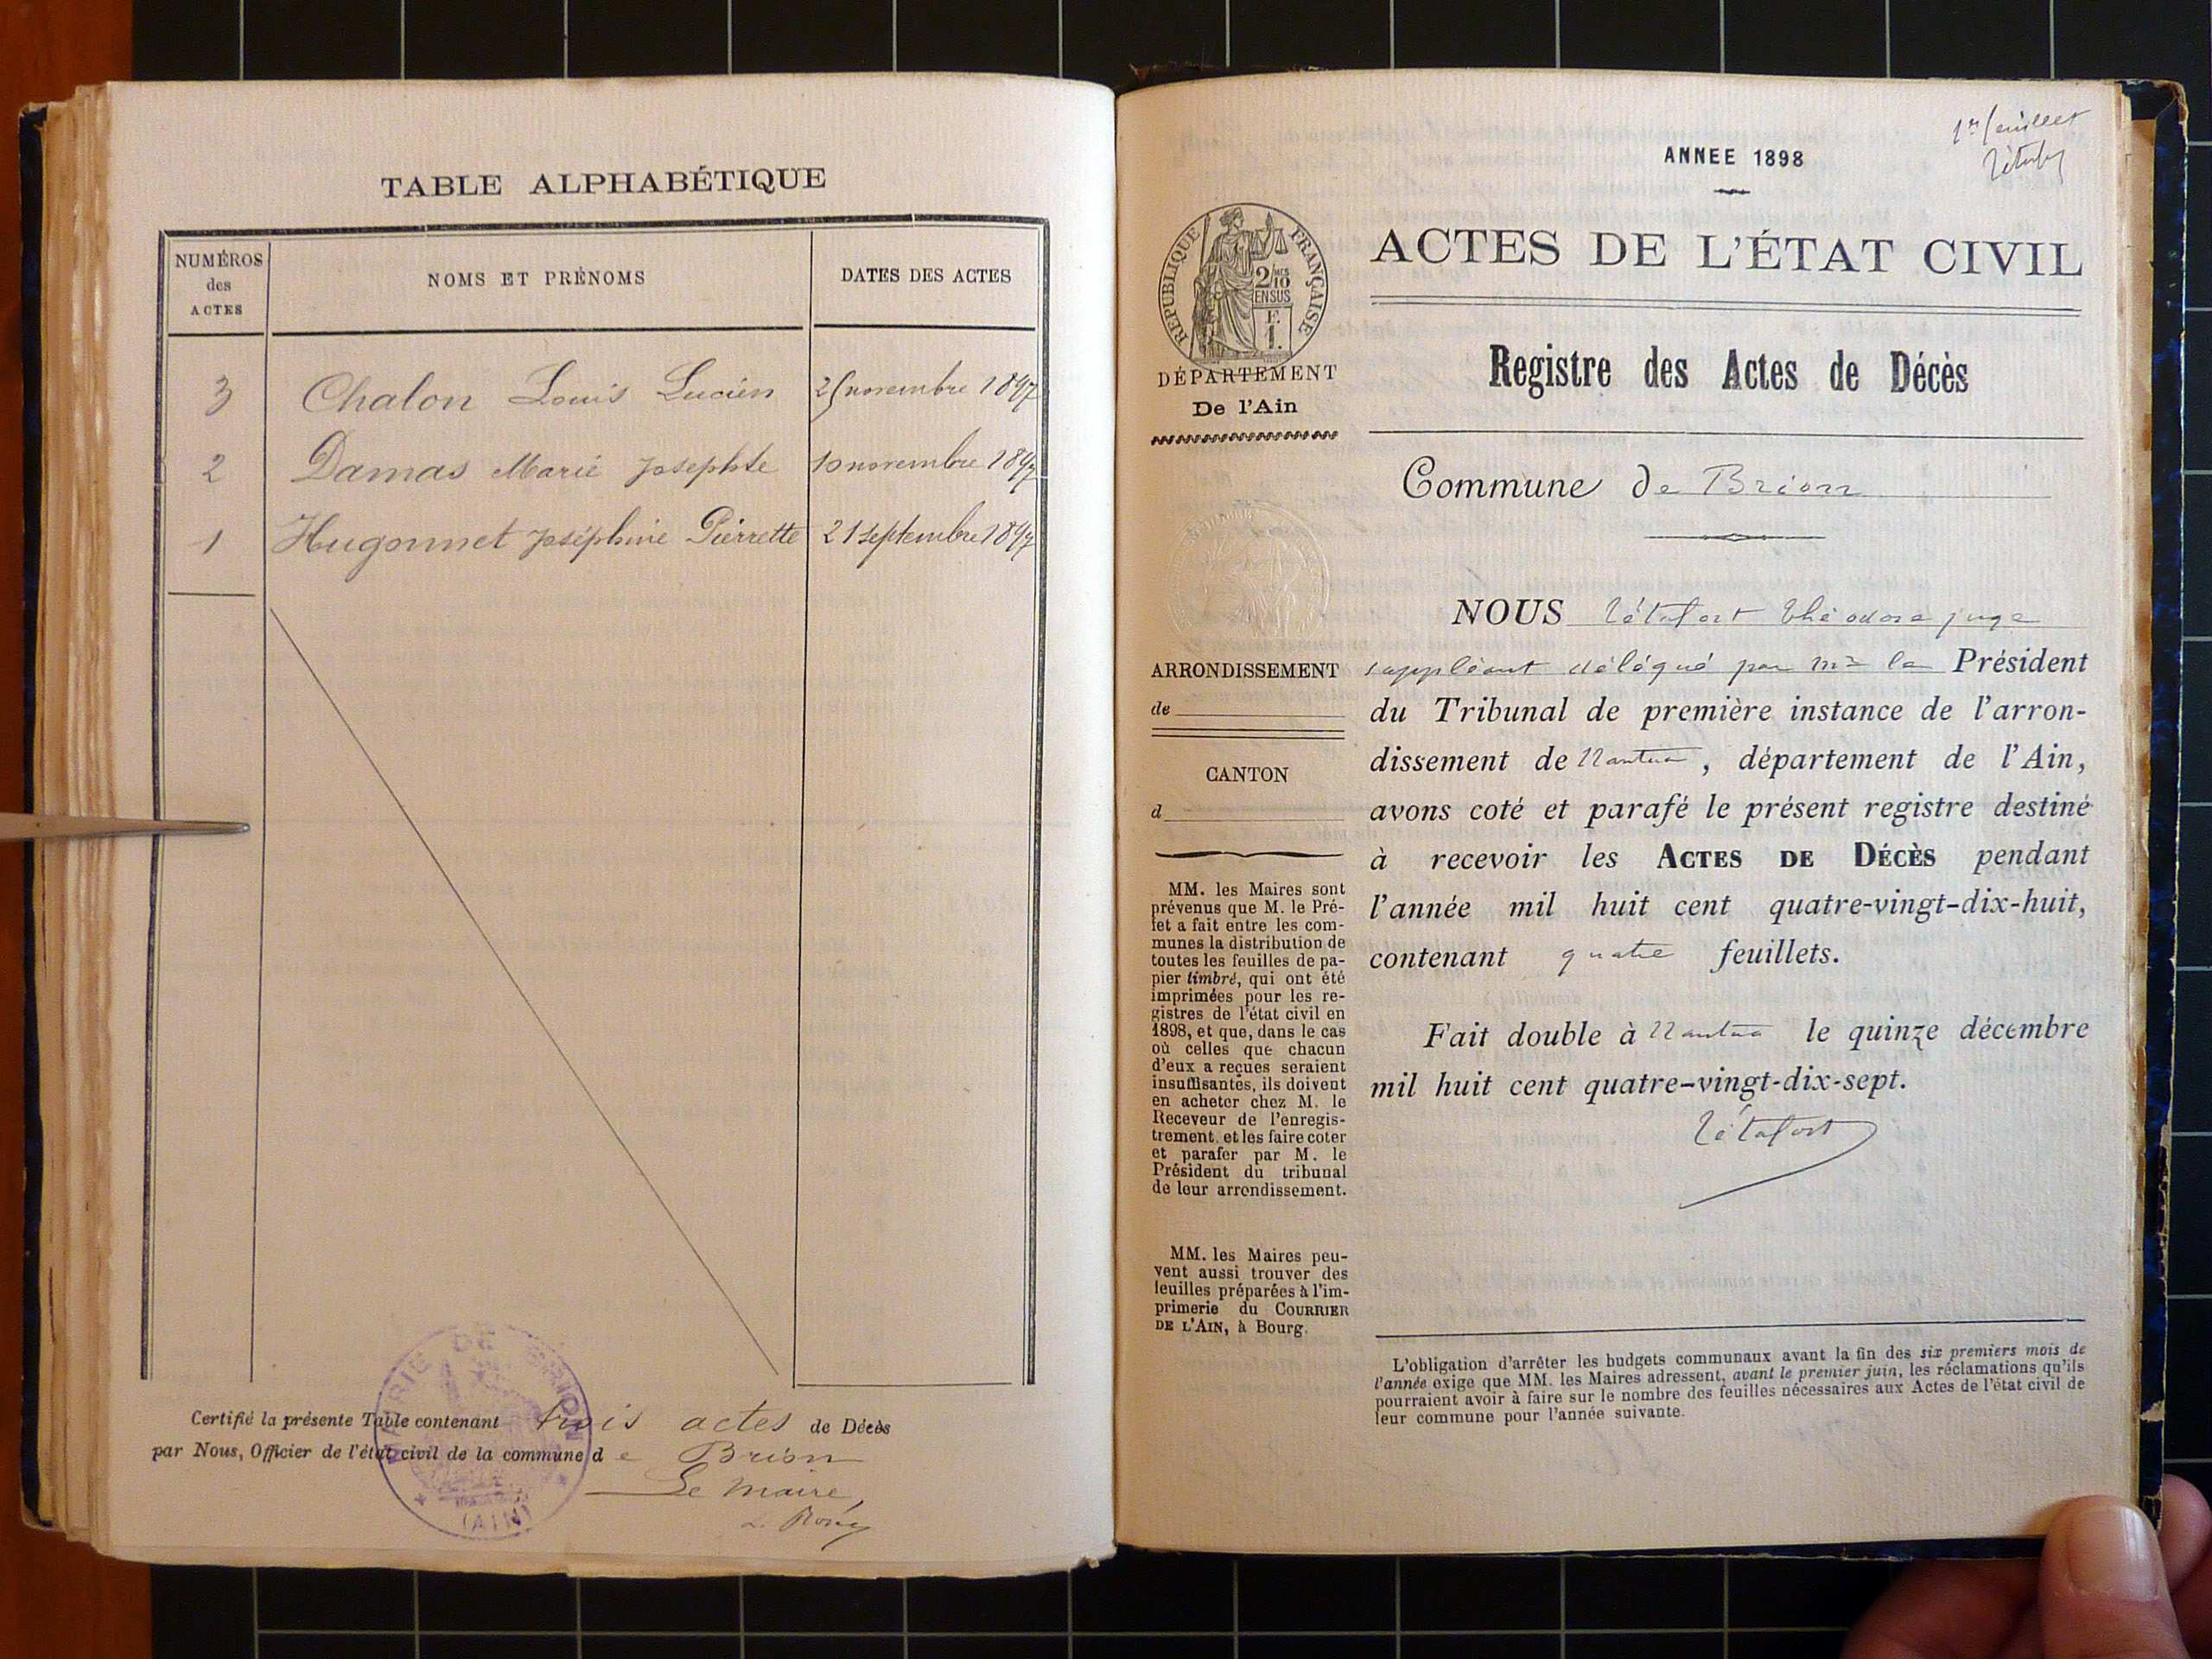 TABLE ALPHABÉTIQUE
NUMÉROS
des
ACTES
NOMS ET PRÉNOMS
DATES DES ACTES
3 Chalon Louis Lucien 25 novembre 1897
2 Damas Marie Josephte 10 novembre 1897
1 Hugonnet Joséphine Pierrette 21 septembre 1897
Certifié la présente Table contenant trois actes de Décès
par Nous, Officier de l'état civil de la commune de Brion
Le Maire,
MAIRIE DE BRION
(AIN)
1er feuillet
ANNEE 1898
RÉPUBLIQUE FRANÇAISE
2/10
EN SUS
F.
1.
ACTES DE L'ÉTAT CIVIL
Registre des Actes de Décès
DÉPARTEMENT
De l'Ain
Commune de Brion
NOUS Létafort Théodore juge
suppléant délégué par Mr le Président
du Tribunal de première instance de l'arron-
dissement de Nantua, département de l'Ain,
avons coté et parafé le présent registre destiné
à recevoir les ACTES DE DÉCÈS pendant
l'année mil huit cent quatre-vingt-dix-huit,
contenant quatre feuillets.
Fait double à Nantua le quinze décembre
mil huit cent quatre-vingt-dix-sept.
Létafort
ARRONDISSEMENT
de
CANTON
d
MM. les Maires sont
prévenus que M. le Pré-
fet a fait entre les com-
munes la distribution de
toutes les feuilles de pa-
pier timbré, qui ont été
imprimées pour les re-
gistres de l'état civil en
1898, et que, dans le cas
où celles que chacun
d'eux a reçues seraient
insuffisantes, ils doivent
en acheter chez M. le
Receveur de l'enregis-
trement, et les faire coter
et parafer par M. le
Président du tribunal
de leur arrondissement.
MM. les Maires peu-
vent aussi trouver des
feuilles préparées à l'im-
primerie du COURRIER
DE L'AIN, à Bourg.
L'obligation d'arrêter les budgets communaux avant la fin des six premiers mois de
l'année exige que MM. les Maires adressent, avant le premier juin, les réclamations qu'ils
pourraient avoir à faire sur le nombre des feuilles nécessaires aux Actes de l'état civil de
leur commune pour l'année suivante.